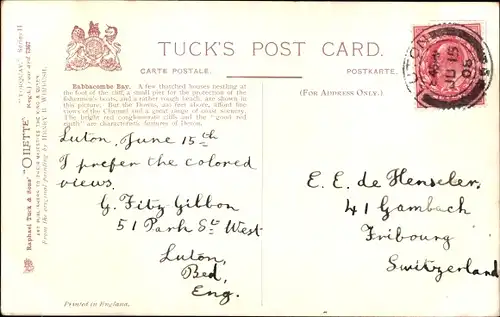 TUCK'S POST CARD.
CARTE POSTALE.
POSTKARTE.
(FOR ADDRESS ONLY.)
Babbacombe Bay. A few thatched houses nestling at
the foot of the cliff, a small pier for the protection of the
fishermen's boats, and a rather rough beach, are shown in
this picture. But the Downs, 220 feet above, afford fine
views of the Channel and a great range of coast scenery.
The bright red conglomerate cliffs and the "good red
earth" are characteristic features of Devon.
Luton, June 15th
I prefer the colored
views.
G. Fitz Gibbon
51 Park St West
Luton,
Bed,
Eng.
E. E. de Henseler,
41 Gambach
Fribourg
Switzerland
Printed in England.
Raphael Tuck & Sons' "OILETTE"
ART PUBLISHERS TO THEIR MAJESTIES THE KING & QUEEN
From the original Painting by HENRY B. WIMBUSH.
"TORQUAY." Series II
LUTON
JU 15
05